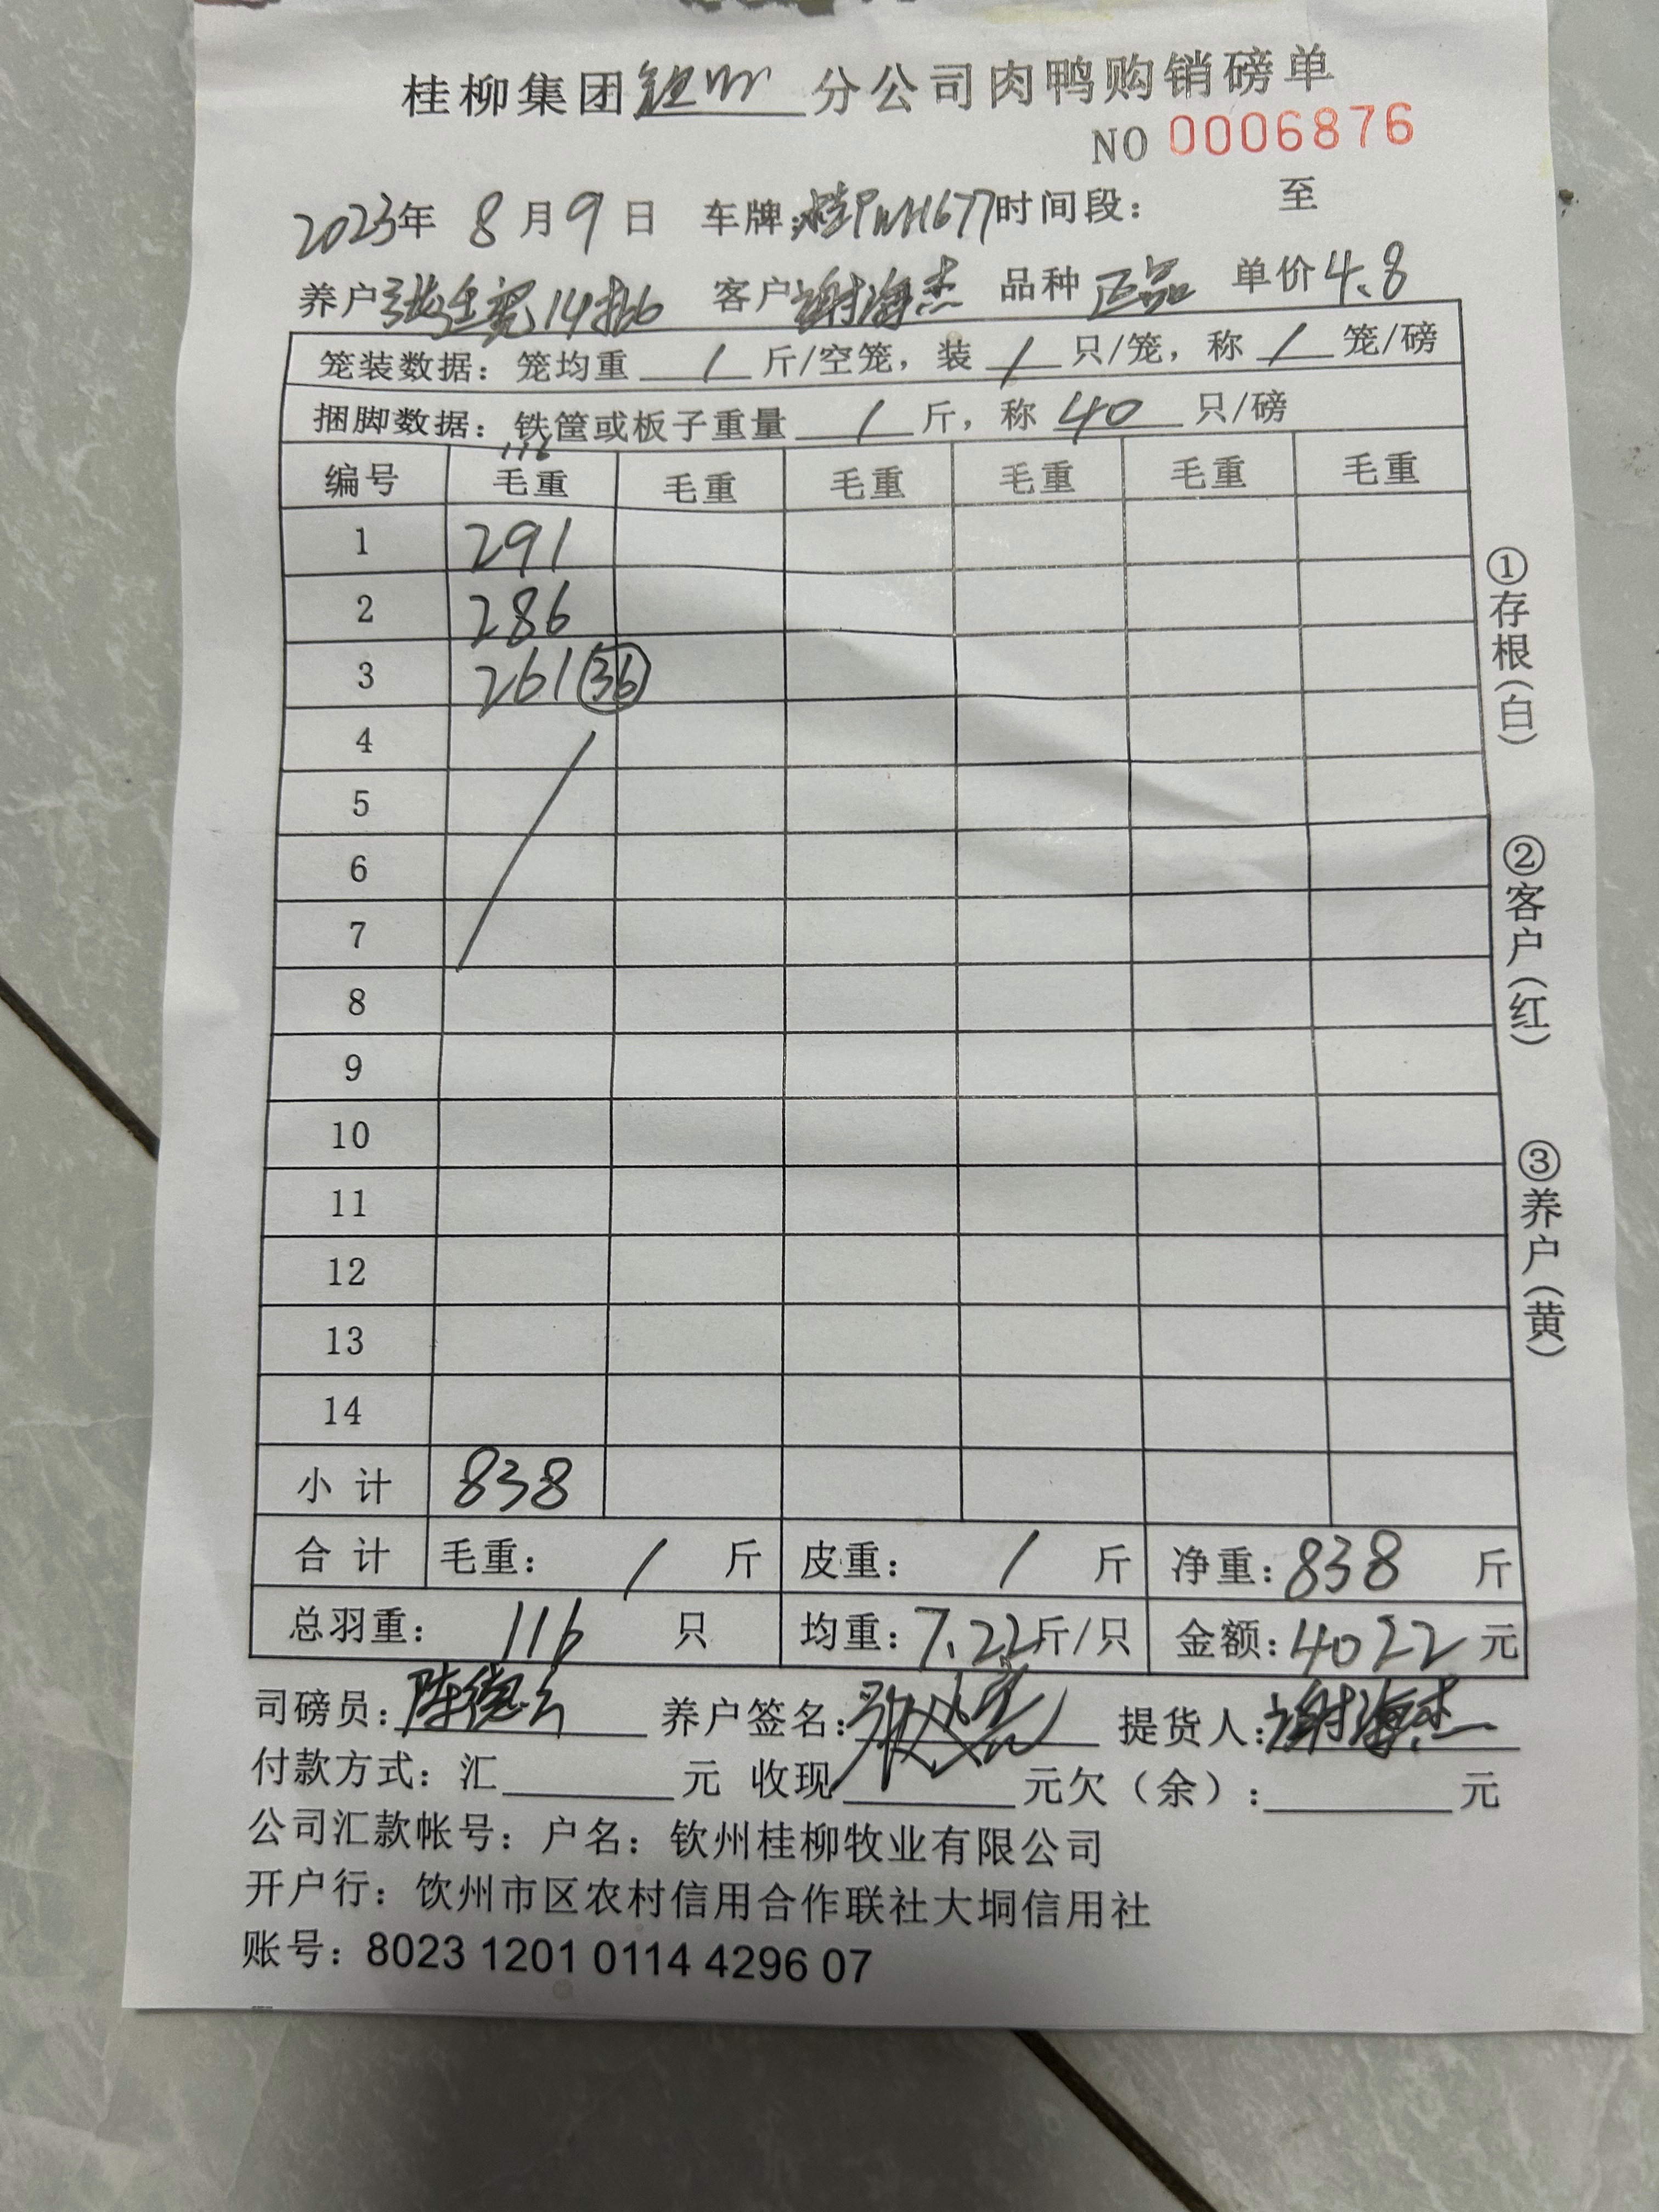 桂柳集团钦州分公司肉鸭购销磅单
NO 0006876
2023年 8月9日 车牌:桂PWH677 时间段: 至
养户 14批 客户谢海杰 品种 正品 单价4.8
笼装数据: 笼均重 / 斤/空笼, 装 / 只/笼, 称 / 笼/磅
捆脚数据: 铁筐或板子重量 / 斤, 称 40 只/磅
116
编号 毛重 毛重 毛重 毛重 毛重 毛重
1 291
2 286
3 261 (36)
4
5
6
7
8
9
10
11
12
13
14
小计 838
合计 毛重: / 斤 皮重: / 斤 净重: 838 斤
总羽重: 116 只 均重: 7.22斤/只 金额: 4022 元
司磅员: 养户签名: 提货人: 谢海杰
付款方式: 汇 元 收现 元欠(余): 元
公司汇款帐号: 户名: 钦州桂柳牧业有限公司
开户行: 饮州市区农村信用合作联社大垌信用社
账号: 8023 1201 0114 4296 07
①存根(白)
②客户(红)
③养户(黄)